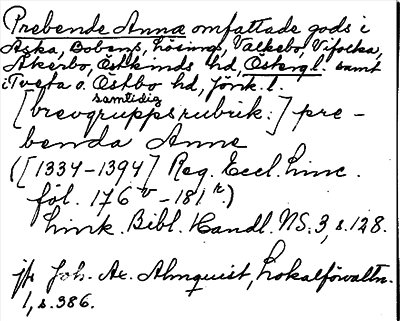 Prebende Annæ omfattade gods i
Aska, Bobergs, Lösings, Valkebo, Vifolka,
Åkerbo, Östkinds hd, Österg.l. samt
i Tveta o. Östbo hd, Jönk. l.
samtidig
[brevgruppsrubrik:] pre-
benda Anne
([1334-1394] Reg. Eccl. Linc.
fol. 176v-181r.)
Link. Bibl. Handl. NS. 3, s. 128.
jfr Joh. Ax. Almquist, Lokalförvaltn.
1, s. 386.